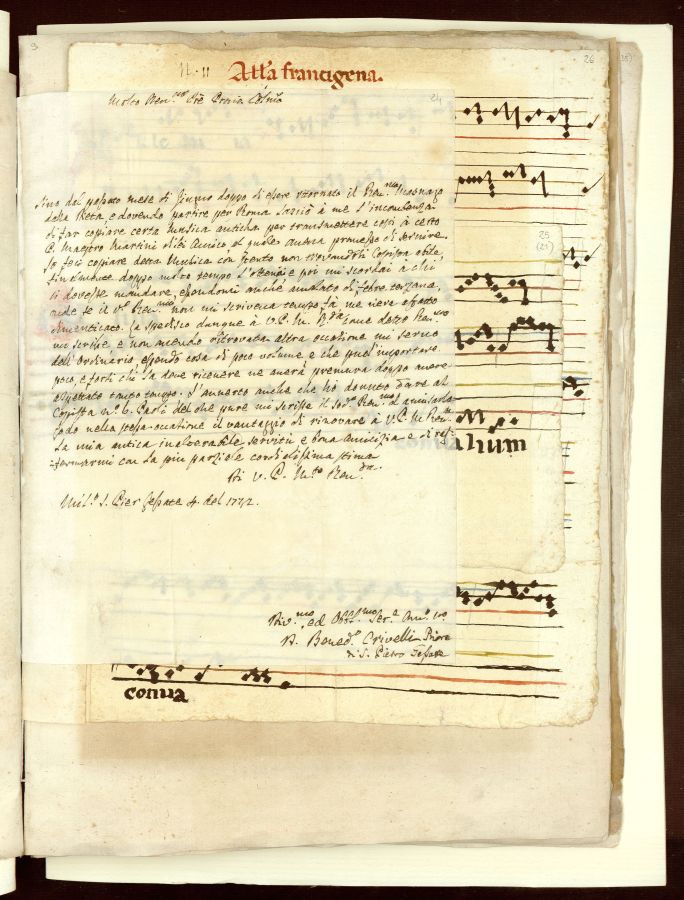 9
26
N. 11 Alla francigena.
24
Molto Rev.
sino dal passato mese di Giugno doppo di essere ritornato il Rev.mo
dalla e dovendo partire per Roma lasciò à me l'incombenza
di far copiare certa musica anticha per trasmettere così à certo
P. Maestro Martini di lui Amico al quale aveva promesso di servire
Io feci copiare detta Musica con stento non trovandosi Copista abile
Finalmente doppo molto tempo l'ottenni e poi mi scordai a chi
si dovesse mandare, essendomi anche amalato di febre terzana,
il Rev.mo non mi scriveva tempo fà me n'ero affatto
dimenticato. La spedisco dunque à V. P. M. R.da come detto Rev.mo
mi scrisse, e non avendo ritrovata altra occatione mi servo
dell'Ordinario, essendo cosa di poco volume, e che puol' importare
poco, e forsi chi la deve ricevere ne averà premura doppo avere
aspettato tanto tempo. L'averto anche che ho dovuto dare al
Copista n.o 6. Paoli del che pure mi scrisse il Rev.mo d'avisarla
Godo nella stessa occatione il vantaggio di rinovare à V. P. M. Rev.da
La mia antica inalverabile servitù e bona Amicizia e di
fermarmi con la più parziale cordialissima stima
Di V. P. M.to Rev.da
Mil.o S. Pier Gessate 4. del 1772.
25
(21)
alium
Div.mo, ed Obb.mo Ser.e Am.o
D. Bened.o Crivelli Priore
di S. Pietro Gessate
conua